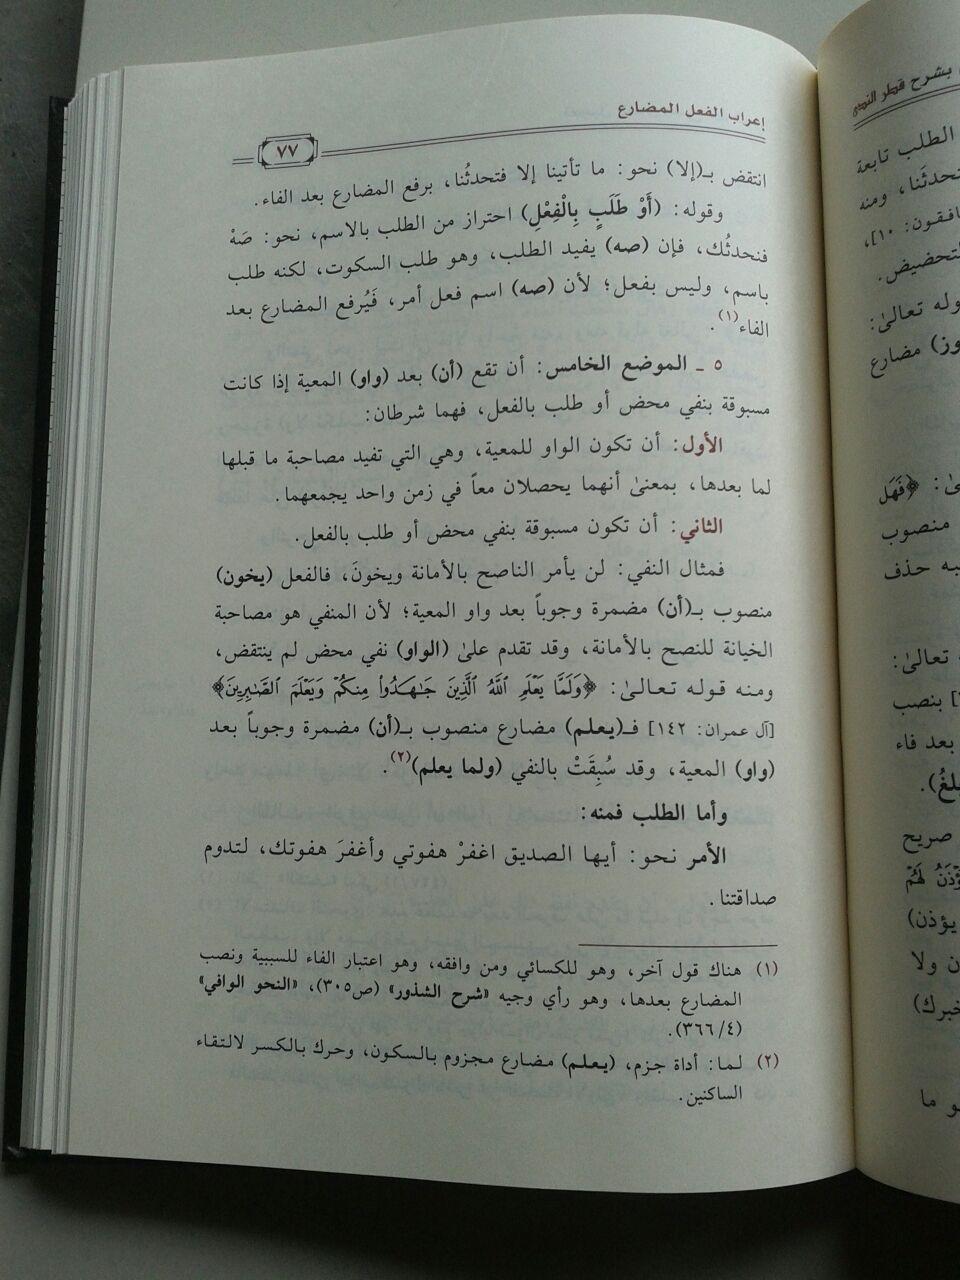 إعراب الفعل المضارع
٧٧
انتقض بـ(إلا) نحو: ما تأتينا إلا فتحدثُنا، برفع المضارع بعد الفاء.
وقوله: (أَوْ طَلَبٍ بِالْفِعْلِ) احتراز من الطلب بالاسم، نحو: صَهْ
فنحدثُك، فإن (صه) يفيد الطلب، وهو طلب السكوت، لكنه طلب
باسم، وليس بفعل؛ لأن (صه) اسم فعل أمر، فَيُرفع المضارع بعد
الفاء(١).
٥ ـ الموضع الخامس: أن تقع (أن) بعد (واو) المعية إذا كانت
مسبوقة بنفي محض أو طلب بالفعل، فهما شرطان:
الأول: أن تكون الواو للمعية، وهي التي تفيد مصاحبة ما قبلها
لما بعدها، بمعنىٰ أنهما يحصلان معاً في زمن واحد يجمعهما.
الثاني: أن تكون مسبوقة بنفي محض أو طلب بالفعل.
فمثال النفي: لن يأمر الناصح بالأمانة ويخونَ، فالفعل (يخون)
منصوب بـ(أن) مضمرة وجوباً بعد واو المعية؛ لأن المنفي هو مصاحبة
الخيانة للنصح بالأمانة، وقد تقدم علىٰ (الواو) نفي محض لم ينتقض،
ومنه قوله تعالىٰ: ﴿وَلَمَّا يَعْلَمِ ٱللَّهُ ٱلَّذِينَ جَـٰهَدُواْ مِنكُمْ وَيَعْلَمَ ٱلصَّـٰبِرِينَ﴾
[آل عمران: ١٤٢] فـ(يعلم) مضارع منصوب بـ(أن) مضمرة وجوباً بعد
(واو) المعية، وقد سُبِقَتْ بالنفي (ولما يعلم)(٢).
وأما الطلب فمنه:
الأمر نحو: أيها الصديق اغفرْ هفوتي وأغفرَ هفوتك، لتدوم
صداقتنا.
(١) هناك قول آخر، وهو للكسائي ومن وافقه، وهو اعتبار الفاء للسببية ونصب
المضارع بعدها، وهو رأي وجيه «شرح الشذور» (ص٣٠٥)، «النحو الوافي»
(٤/٣٦٦).
(٢) لما: أداة جزم، (يعلم) مضارع مجزوم بالسكون، وحرك بالكسر لالتقاء
الساكنين.
بشرح قطر الندى
الطلب تابعة
ومنه
١٠]،
تعالىٰ:
مضارع
﴿فَهَل
منصوب
حذف
تعالىٰ:
بنصب
بعد فاء
صريح
لَهُمْ
يؤذن)
ولا
ما